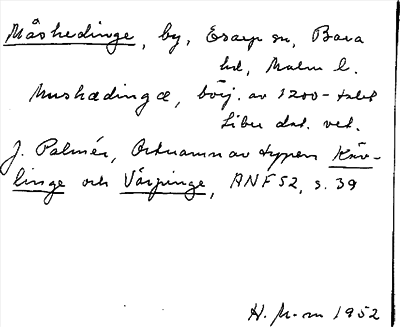 Måshedinge, by, Esarp sn, Bara
hd, Malm l.
Mushædingæ, börj. av 1200-talet
Liber dat. vet.
J. Palmér, Ortnamn av typen Käv-
linge och Värpinge, ANF 52, s. 39
H. M-m 1952